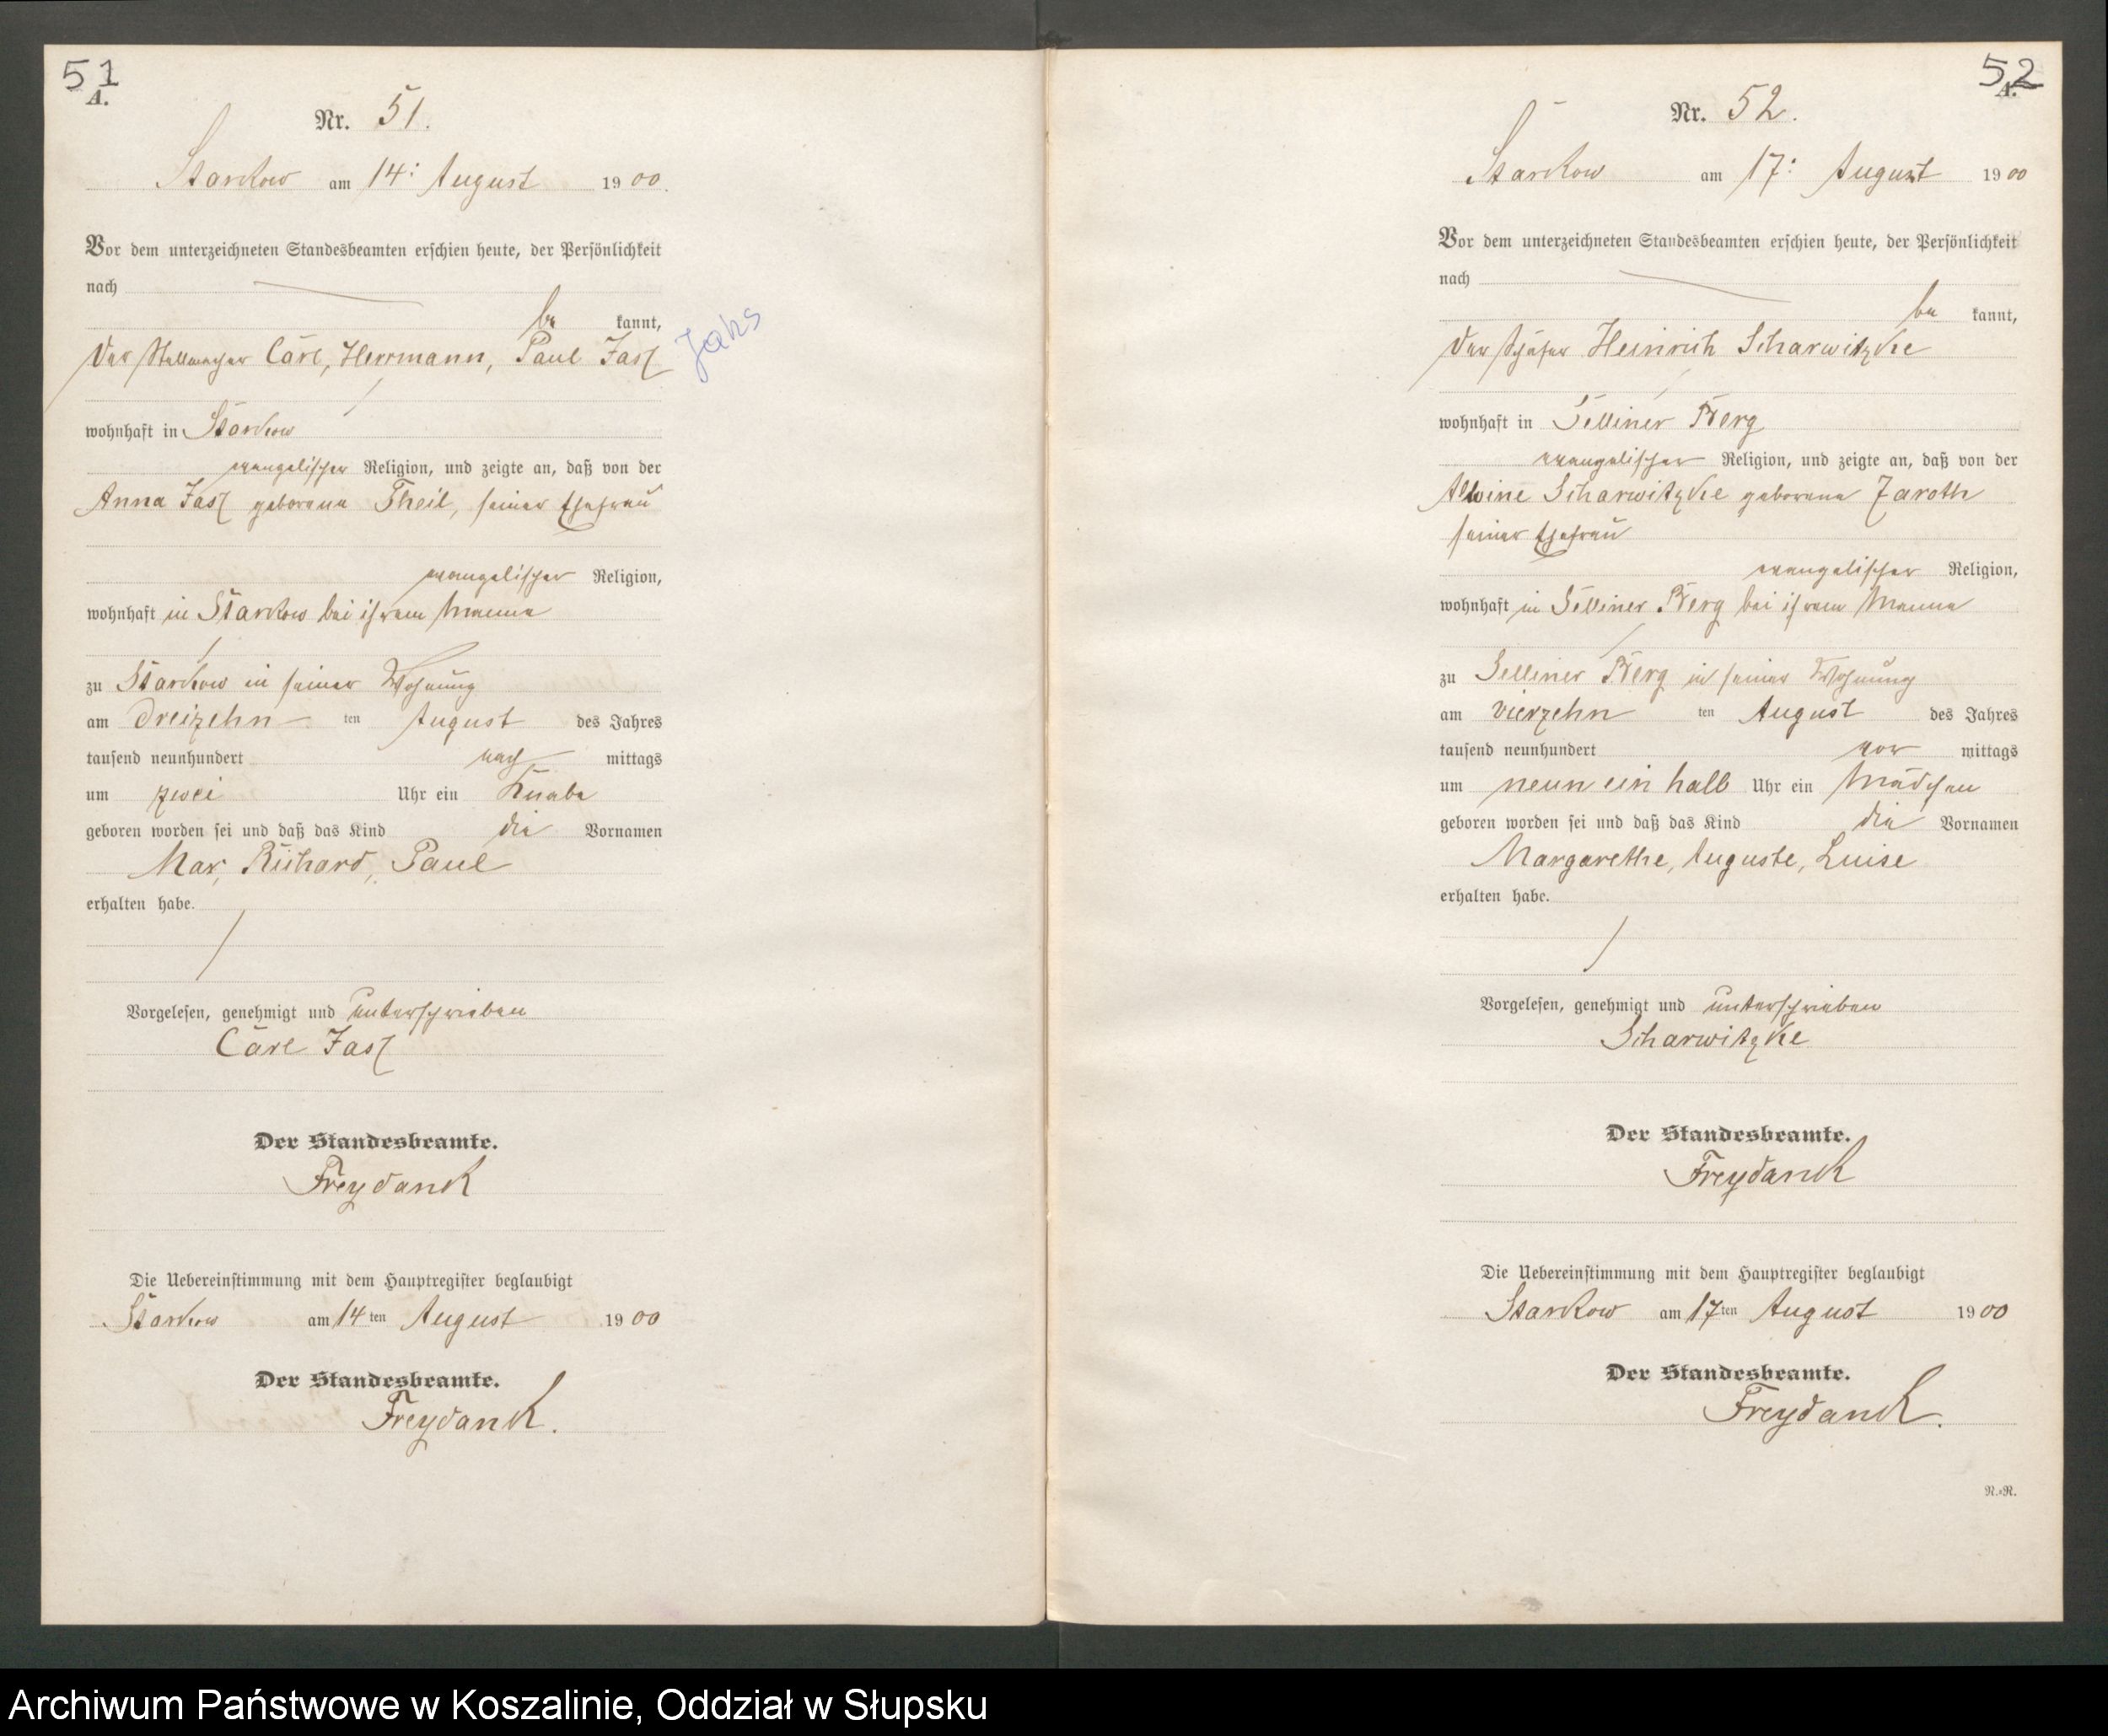 51
A.
Nr. 51.
Starkow am 14: August 1900.
Vor dem unterzeichneten Standesbeamten erschien heute, der Persönlichkeit
nach
be kannt,
der Stellmacher Carl, Herrmann, Paul
Jahs
wohnhaft in Starkow
evangelischer Religion, und zeigte an, daß von der
Anna geborene Theil, seiner Ehefrau
evangelischer Religion,
wohnhaft in Starkow bei ihrem Manne
zu Starkow in seiner Wohnung
am dreizehn ten August des Jahres
tausend neunhundert nach mittags
um zwei Uhr ein Knabe
geboren worden sei und daß das Kind die Vornamen
Max, Richard, Paul
erhalten habe.
Vorgelesen, genehmigt und unterschrieben
Carl
Der Standesbeamte.
Freydank
Die Uebereinstimmung mit dem Hauptregister beglaubigt
Starkow am 14ten August 1900
Der Standesbeamte.
Freydank.
52
A.
Nr. 52.
Starkow am 17: August 1900
Vor dem unterzeichneten Standesbeamten erschien heute, der Persönlichkeit
nach
be kannt,
der Schäfer Heinrich Scharwitzke
wohnhaft in Selliner Berg
evangelischer Religion, und zeigte an, daß von der
Alwine Scharwitzke geborene Jaroth
seiner Ehefrau
evangelischer Religion,
wohnhaft in Selliner Berg bei ihrem Manne
zu Selliner Berg in seiner Wohnung
am vierzehn ten August des Jahres
tausend neunhundert vor mittags
um neun ein halb Uhr ein Mädchen
geboren worden sei und daß das Kind die Vornamen
Margarethe, Auguste, Luise
erhalten habe.
Vorgelesen, genehmigt und unterschrieben
Scharwitzke
Der Standesbeamte.
Freydank
Die Uebereinstimmung mit dem Hauptregister beglaubigt
Starkow am 17ten August 1900
Der Standesbeamte.
Freydank.
R.=R.
Archiwum Państwowe w Koszalinie, Oddział w Słupsku